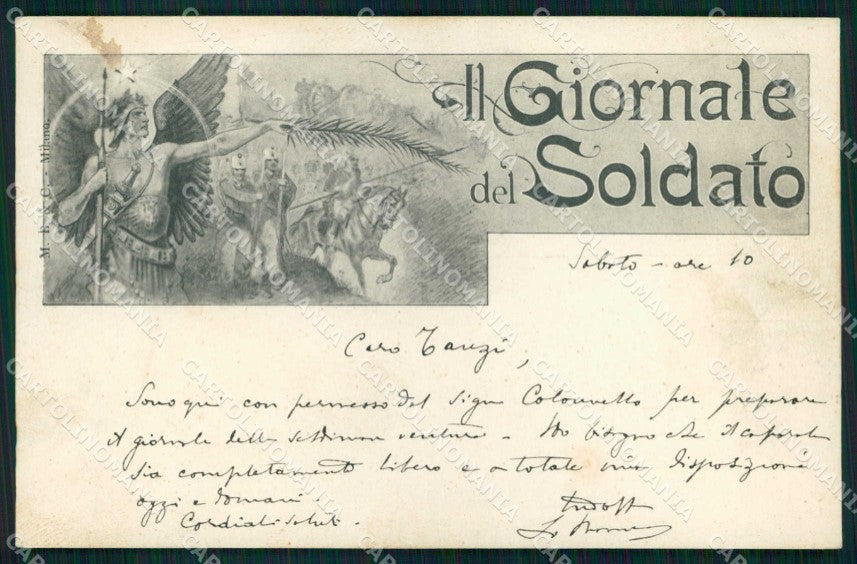 Il Giornale
del Soldato
M. E. & C. - Milano.
Sabato - ore 10
Caro Tanzi,
Sono qui con permesso del Sigr Colonnello per preparare
il giornale della settimana ventura - Ho bisogno che il caporale
sia completamente libero e a totale mia disposizione
oggi e domani.
Cordiali saluti.
CARTOLINOMANIA